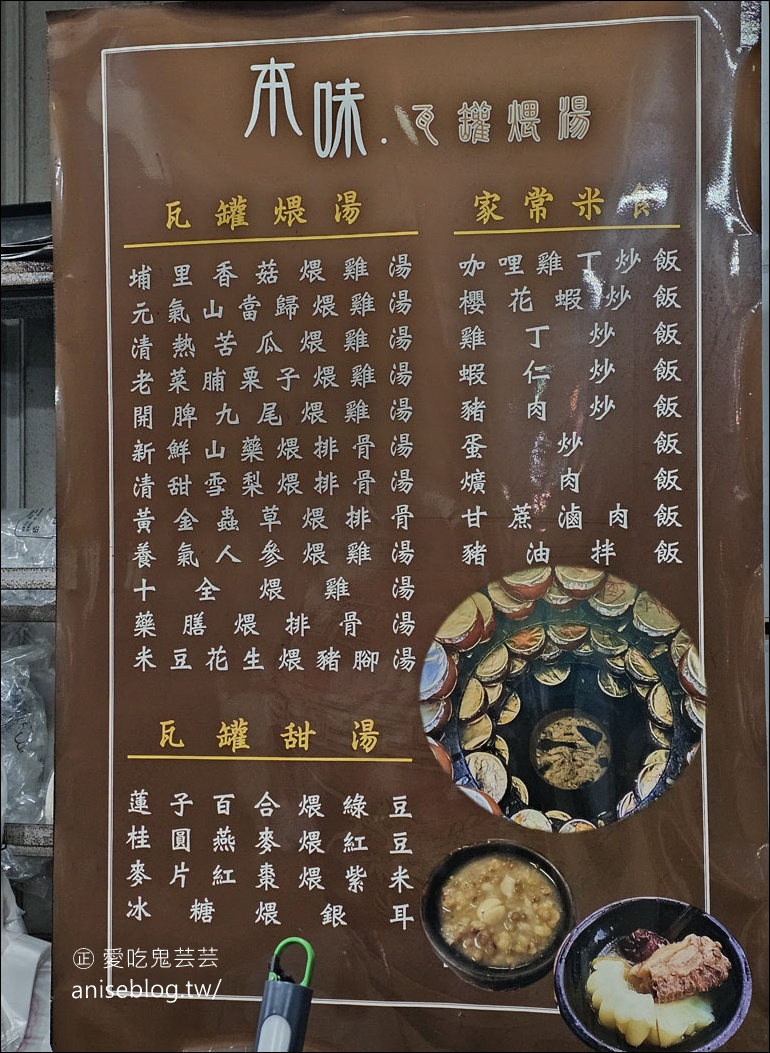 本味．瓦罐煨湯
瓦罐煨湯
埔里香菇煨雞湯
元氣山當歸煨雞湯
清熱苦瓜煨雞湯
老菜脯栗子煨雞湯
開脾九尾煨雞湯
新鮮山藥煨排骨湯
清甜雪梨煨排骨湯
黃金蟲草煨排骨
養氣人參煨雞湯
十全煨雞湯
藥膳煨排骨湯
米豆花生煨豬腳湯
瓦罐甜湯
蓮子百合煨綠豆
桂圓燕麥煨紅豆
麥片紅棗煨紫米
冰糖煨銀耳
家常米食
咖哩雞丁炒飯
櫻花蝦炒飯
雞丁炒飯
蝦仁炒飯
豬肉炒飯
蛋炒飯
爌肉飯
甘蔗滷肉飯
豬油拌飯
正 愛吃鬼芸芸
aniseblog.tw/